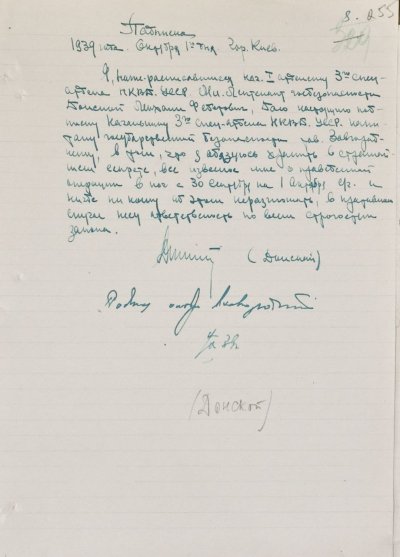 8. 255
Подписка
1939 года Октября 1го дня. Гор. Киев.
Я, нижеподписавшийся нач. I отделения 3го спец-
отдела НКВД УССР Мл. Лейтенант госбезопасности
Донской Михаил Федорович, даю настоящую под-
писку Начальнику 3го спец-отдела НКВД УССР капи-
тану государственной безопасности тов.
в том, что я обязуюсь хранить в строжай-
шем секрете, все известное мне о проведенной
операции в ночь с 30 сентября на 1 октября с/г. и
нигде никому об этом не разглашать, в противном
случае несу ответственность по всей строгости
закона.
(Донской)
1/X 39.
(Донской)